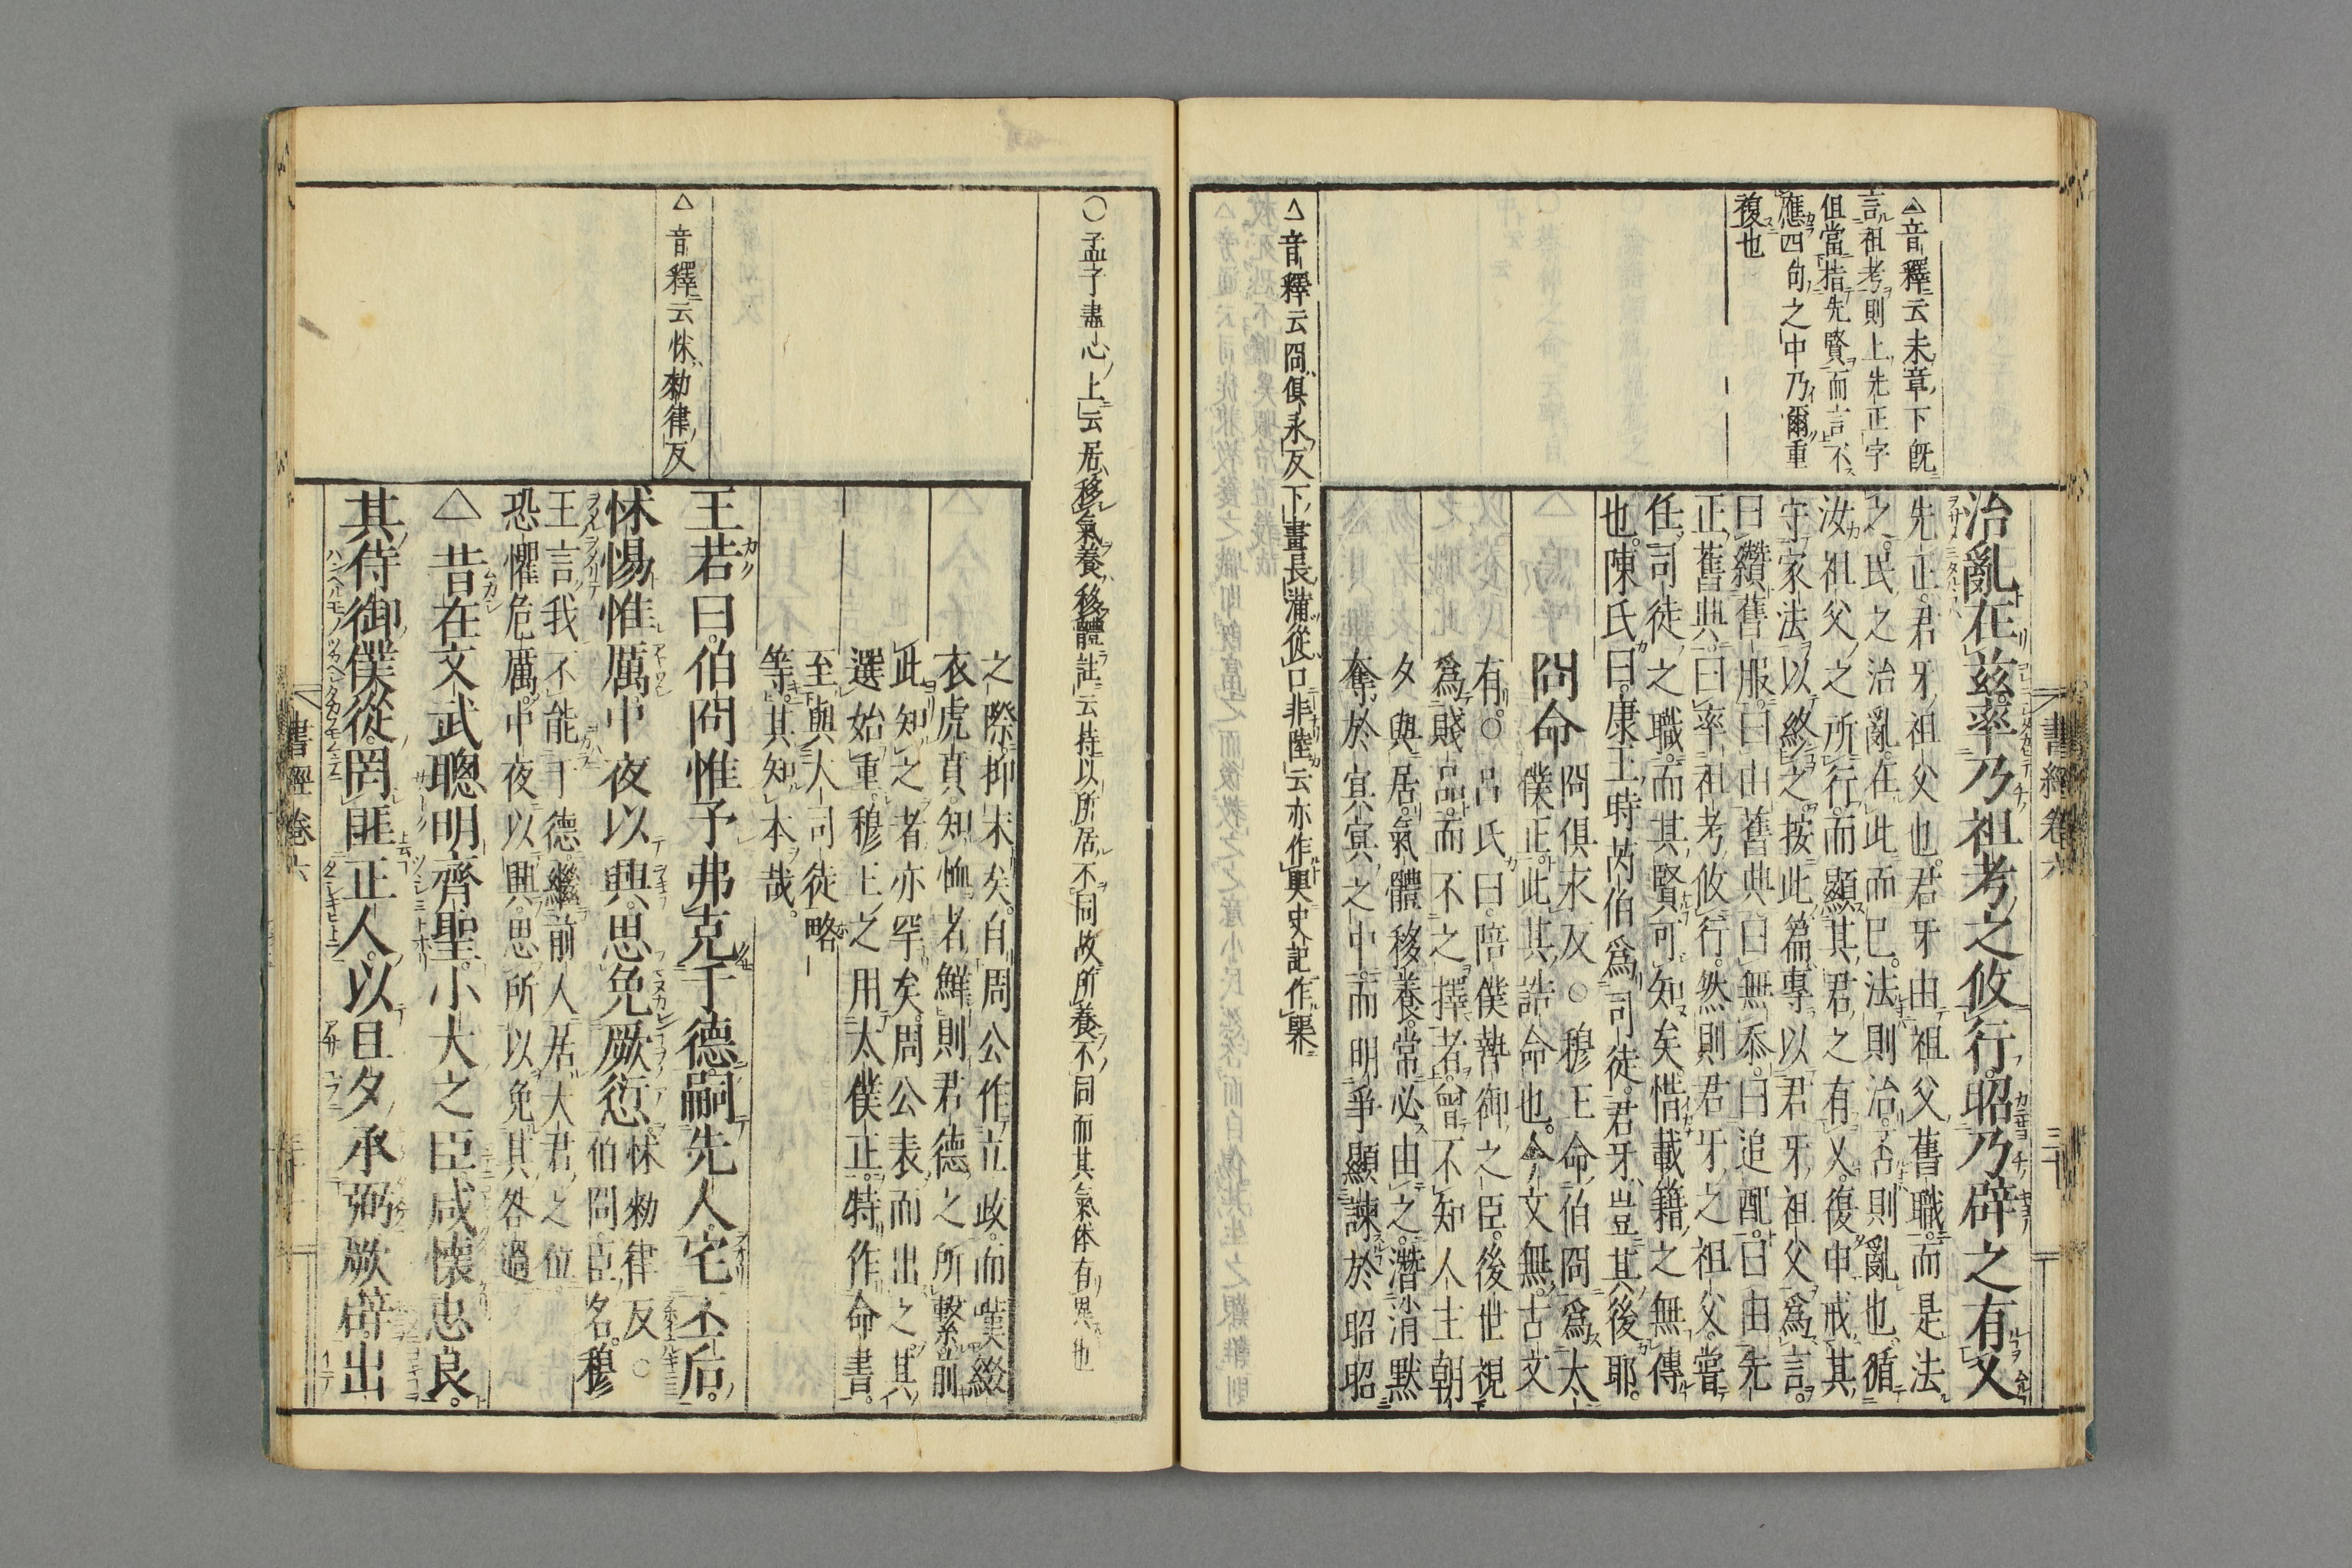 △音釋云未章下旣
言祖考則上先正字
但當指先賢而言不
應四句之中乃爾重
複也
治亂在玆率乃祖考之攸行昭乃辟之有乂
先正君牙祖父也君牙由祖父舊職而是法
之民之治亂在此而已法則治否則亂也循
汝祖父之所行而顯其君之有乂復申戒其
守家法以終之按此篇專以君牙祖父爲言
曰纘舊服曰由舊典曰無忝曰追配曰由先
正舊典曰率祖考攸行然則君牙之祖父嘗
任司徒之職而其賢可知矣惜載籍之無傳
也陳氏曰康王時芮伯爲司徒君牙豈其後耶
冏命
冏俱永反○穆王命伯冏爲太
僕正此其誥命也今文無古文
有○呂氏曰陪僕暬御之臣後世視
爲賤品而不之擇者曾不知人主朝
夕與居氣體移養常必由之潛消默
奪於㝠㝠之中而明爭顯諫於昭昭
△音釋云冏俱永反下畫長滿從口非陸云亦作煛史記作臩
書經卷六
三十
○孟子盡心上云居移氣養移體註云持以所居不同故所養不同而其氣体有異也
之際抑末矣自周公作立政而嘆綴
衣虎賁知恤者鮮則君德之所繫前
此知之者亦罕矣周公表而出之其
選始重穆王之用太僕正特作命書
至與大司徒略
等其知本哉
王若曰伯冏惟予弗克于德嗣先人宅丕后
怵惕惟厲中夜以興思免厥愆
怵勑律反○
伯冏臣名穆
王言我不能于德繼前人居大君之位
恐懼危厲中夜以興思所以免其咎過
△音釋云怵勑律反
△昔在文武聰明齊聖小大之臣咸懷忠良
其侍御僕從罔匪正人以旦夕承弼厥辟出
書經卷六